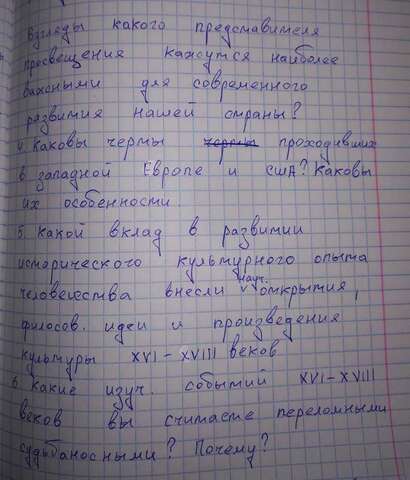 Взгляды какого представителя
просвещения кажутся наиболее
важными для современного
развития нашей страны?
4. Каковы черты черты проходивших
в западной Европе и США? Каковы
их особенности.
5. Какой вклад в развитии
исторического культурного опыта
человечества внесли науч. открытия,
философ. идеи и произведения
культуры XVI-XVIII веков
6. Какие изуч. событий XVI-XVIII
веков вы считаете переломными
судьбаносными? Почему?